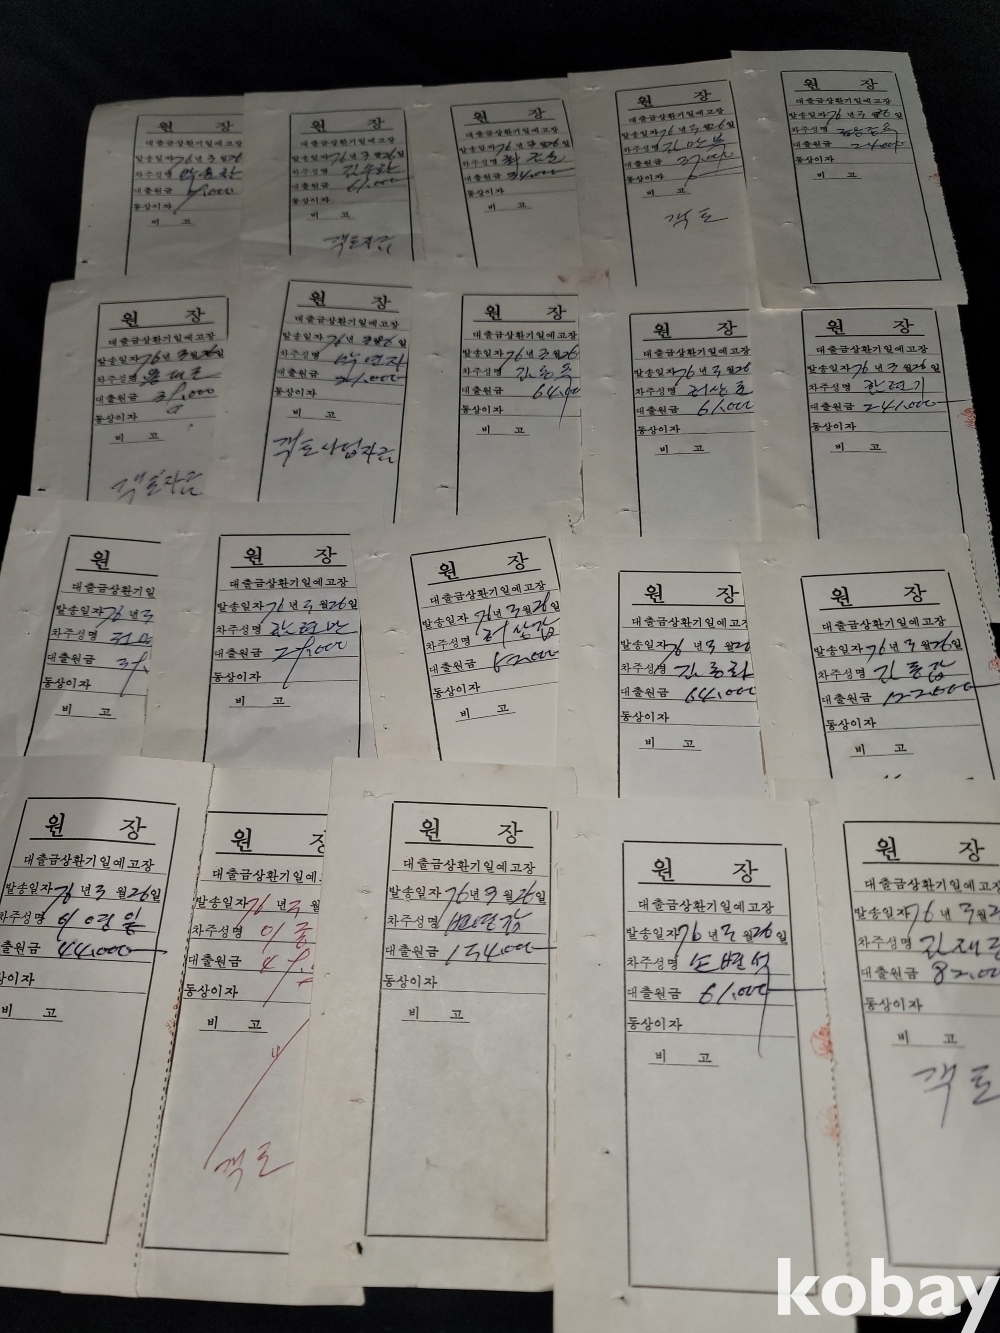 원 장
대출금상환기일예고장
발송일자 76년 3월 26
차주성명
대출원금
동상이자
비 고
원 장
대출금상환기일예고장
발송일자 76년 3월 26일
차주성명
대출원금 61.000
동상이자
비 고
객토자금
원 장
대출금상환기일예고장
발송일자 76년 3월 26일
차주성명
대출원금 34.000
동상이자
비 고
원 장
대출금상환기일예고장
발송일자 76년 3월 26일
차주성명
대출원금
동상이자
비 고
객토
원 장
대출금상환기일예고장
발송일자 76년 3월 26일
차주성명
대출원금 24.000
동상이자
비 고
원 장
대출금상환기일예고장
발송일자 76년 3월 26일
차주성명
대출원금
동상이자
비 고
객토자금
원 장
대출금상환기일예고장
발송일자 76년 3월 26일
차주성명
대출원금
동상이자
비 고
객토사업자금
원 장
대출금상환기일예고장
발송일자 76년 3월 26
차주성명
대출원금 64.000
동상이자
비 고
원 장
대출금상환기일예고장
발송일자 76년 3월 26
차주성명 허상호
대출원금 61.000
동상이자
비 고
원 장
대출금상환기일예고장
발송일자 76년 3월 26
차주성명 한현기
대출원금 241.000
동상이자
비 고
원
대출금상환기일
발송일자 76년 3
차주성명
대출원금
동상이자
비 고
원 장
대출금상환기일예고장
발송일자 76년 3월 26일
차주성명
대출원금
동상이자
비 고
원 장
대출금상환기일예고장
발송일자 76년 3월 26일
차주성명 허상갑
대출원금 62.000
동상이자
비 고
원 장
대출금상환기일예고장
발송일자 76년 3월 26
차주성명 김종화
대출원금 64.000
동상이자
비 고
원 장
대출금상환기일예고장
발송일자 76년 3월 26일
차주성명 김종갑
대출원금 122.000
동상이자
비 고
원 장
대출금상환기일예고장
발송일자 76년 3월 26일
차주성명
대출원금 44.000
동상이자
비 고
원 장
대출금상환기일예
발송일자 76년 3월
차주성명
대출원금
동상이자
비 고
객토
원 장
대출금상환기일예고장
발송일자 76년 3월 26일
차주성명
대출원금 154.000
동상이자
비 고
원 장
대출금상환기일예고장
발송일자 76년 3월 26일
차주성명 노병석
대출원금 61.000
동상이자
비 고
원 장
대출금상환기일예고
발송일자 76년 3월 2
차주성명
대출원금 82.000
동상이자
비 고
객토
kobay